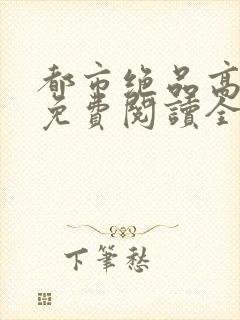 都市绝品高
免費閱讀全
下筆愁